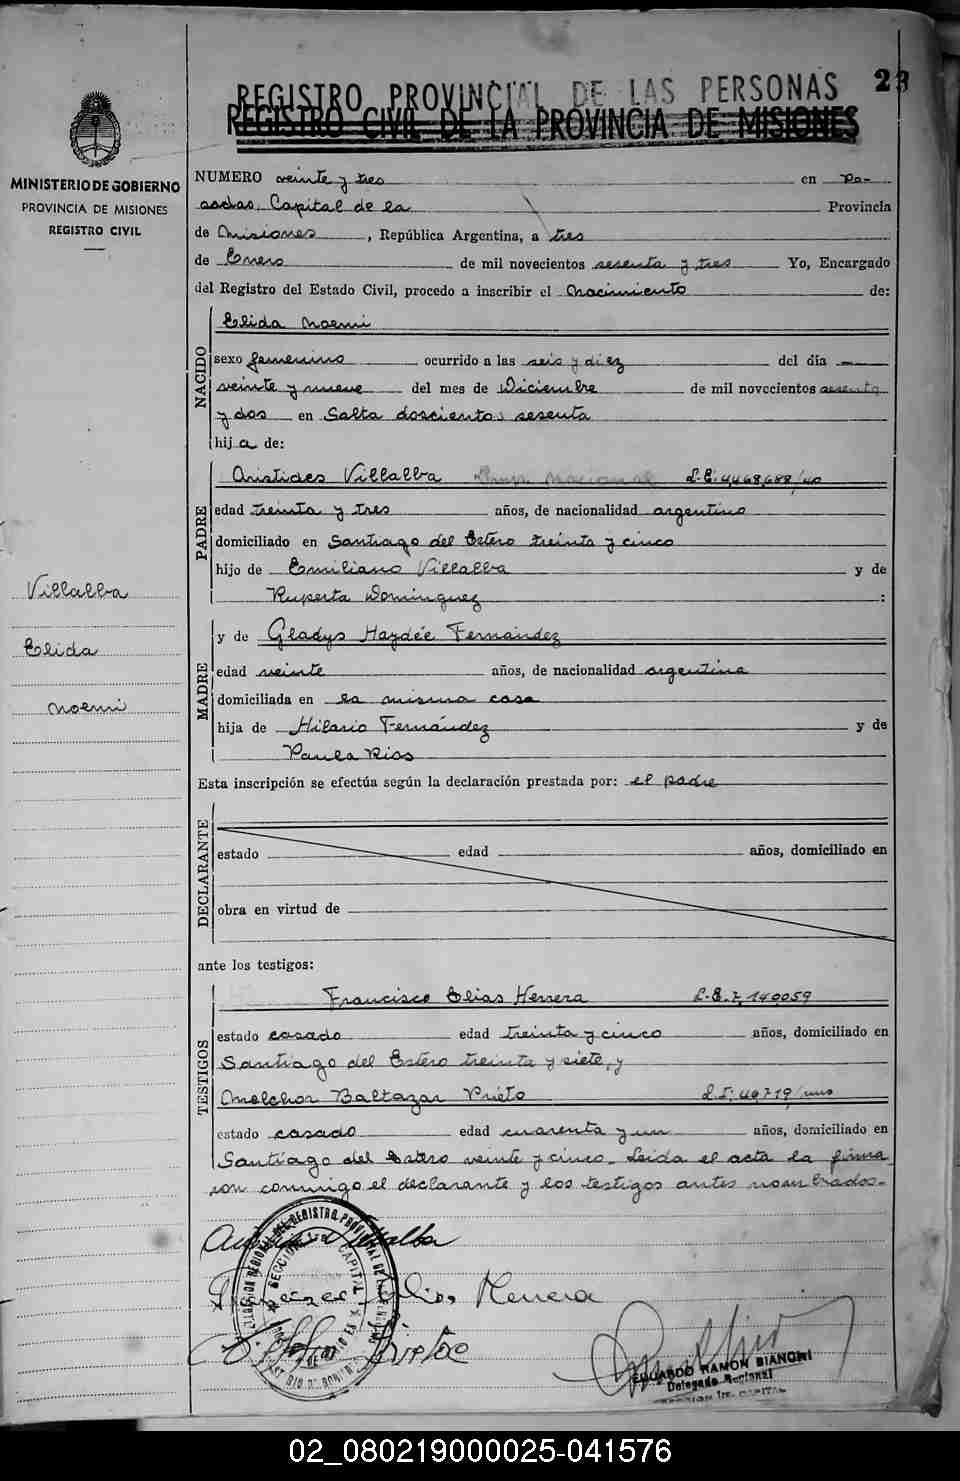 23
REGISTRO PROVINCIAL DE LAS PERSONAS
REGISTRO CIVIL DE LA PROVINCIA DE MISIONES
MINISTERIO DE GOBIERNO
PROVINCIA DE MISIONES
REGISTRO CIVIL
NUMERO veinte y tres en Po-
sadas, Capital de la Provincia
de Misiones, República Argentina, a tres
de Enero de mil novecientos sesenta y tres Yo, Encargado
del Registro del Estado Civil, procedo a inscribir el Nacimiento de:
NACIDO
Elida Noemi
sexo femenino ocurrido a las seis y diez del día
veinte y nueve del mes de Diciembre de mil novecientos sesenta
y dos en Salta doscientos sesenta
hija de:
PADRE
Aristides Villalba L.E. 4468,688/40
edad treinta y tres años, de nacionalidad argentino
domiciliado en Santiago del Estero treinta y cinco
hijo de Emiliano Villalba y de
Ruperta Dominguez :
Villalba
Elida
Noemi
MADRE
y de Gladys Haydée Fernández
edad veinte años, de nacionalidad argentina
domiciliada en la misma casa
hija de Hilario Fernández y de
Paula Rios
Esta inscripción se efectúa según la declaración prestada por: el padre
DECLARANTE
estado edad años, domiciliado en
obra en virtud de
ante los testigos:
TESTIGOS
Francisco Elias Herrera L.E. 7,140059
estado casado edad treinta y cinco años, domiciliado en
Santiago del Estero treinta y siete, y
Melchor Baltazar Prieto
estado casado edad cuarenta y un años, domiciliado en
Santiago del Estero veinte y cinco. Leida el acta la firma
con conmigo el declarante y los testigos antes nombrados.-
Villalba
Francisco Elias Herrera
Prieto
EDUARDO RAMON BIANCHI
Delegado Regional
SECCION 1ra. CAPITAL
02_080219000025-041576